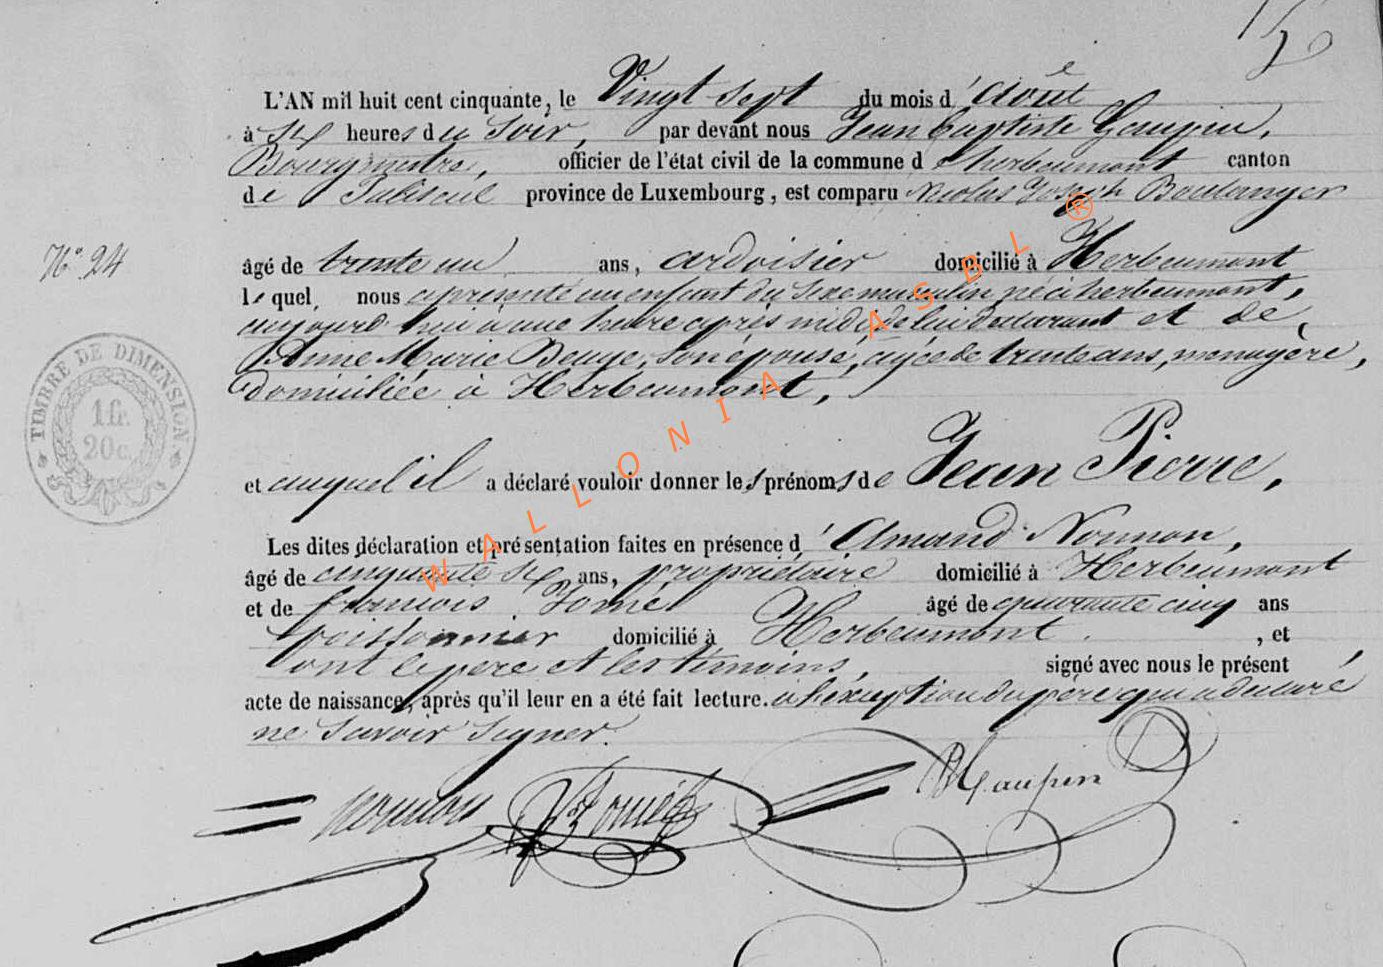 L'AN mil huit cent cinquante, le Vingt sept du mois d'Août
à six heures du Soir, par devant nous Jean Baptiste Gaupin,
Bourgmestre, officier de l'état civil de la commune d'herbeumont canton
de Paliseul province de Luxembourg, est comparu Nicolas Joseph Boulanger
N° 24
âgé de trente un ans, ardoisier domicilié à Herbeumont
lequel nous a présenté un enfant du sexe masculin né à herbeumont,
aujourd'hui à une heure après midi, de lui déclarant et de
Anne Marie son épouse, âgée de trente ans, menagère,
domiciliée à Herbeumont,
TIMBRE DE DIMENSION.
1 fr.
20 c.
et auquel il a déclaré vouloir donner les prénoms de Jean Pierre,
Les dites déclaration et présentation faites en présence d'Amand Nonnon,
âgé de cinquante six ans, propriétaire domicilié à Herbeumont
et de françois Jomé âgé de quarante cinq ans
poissonnier domicilié à Herbeumont, et
ont le père et les témoins, signé avec nous le présent
acte de naissance, après qu'il leur en a été fait lecture. à l'exception du père qui a declaré
ne savoir signer.
nonnon Jomé Gaupin
WALLONIA ASBL ®